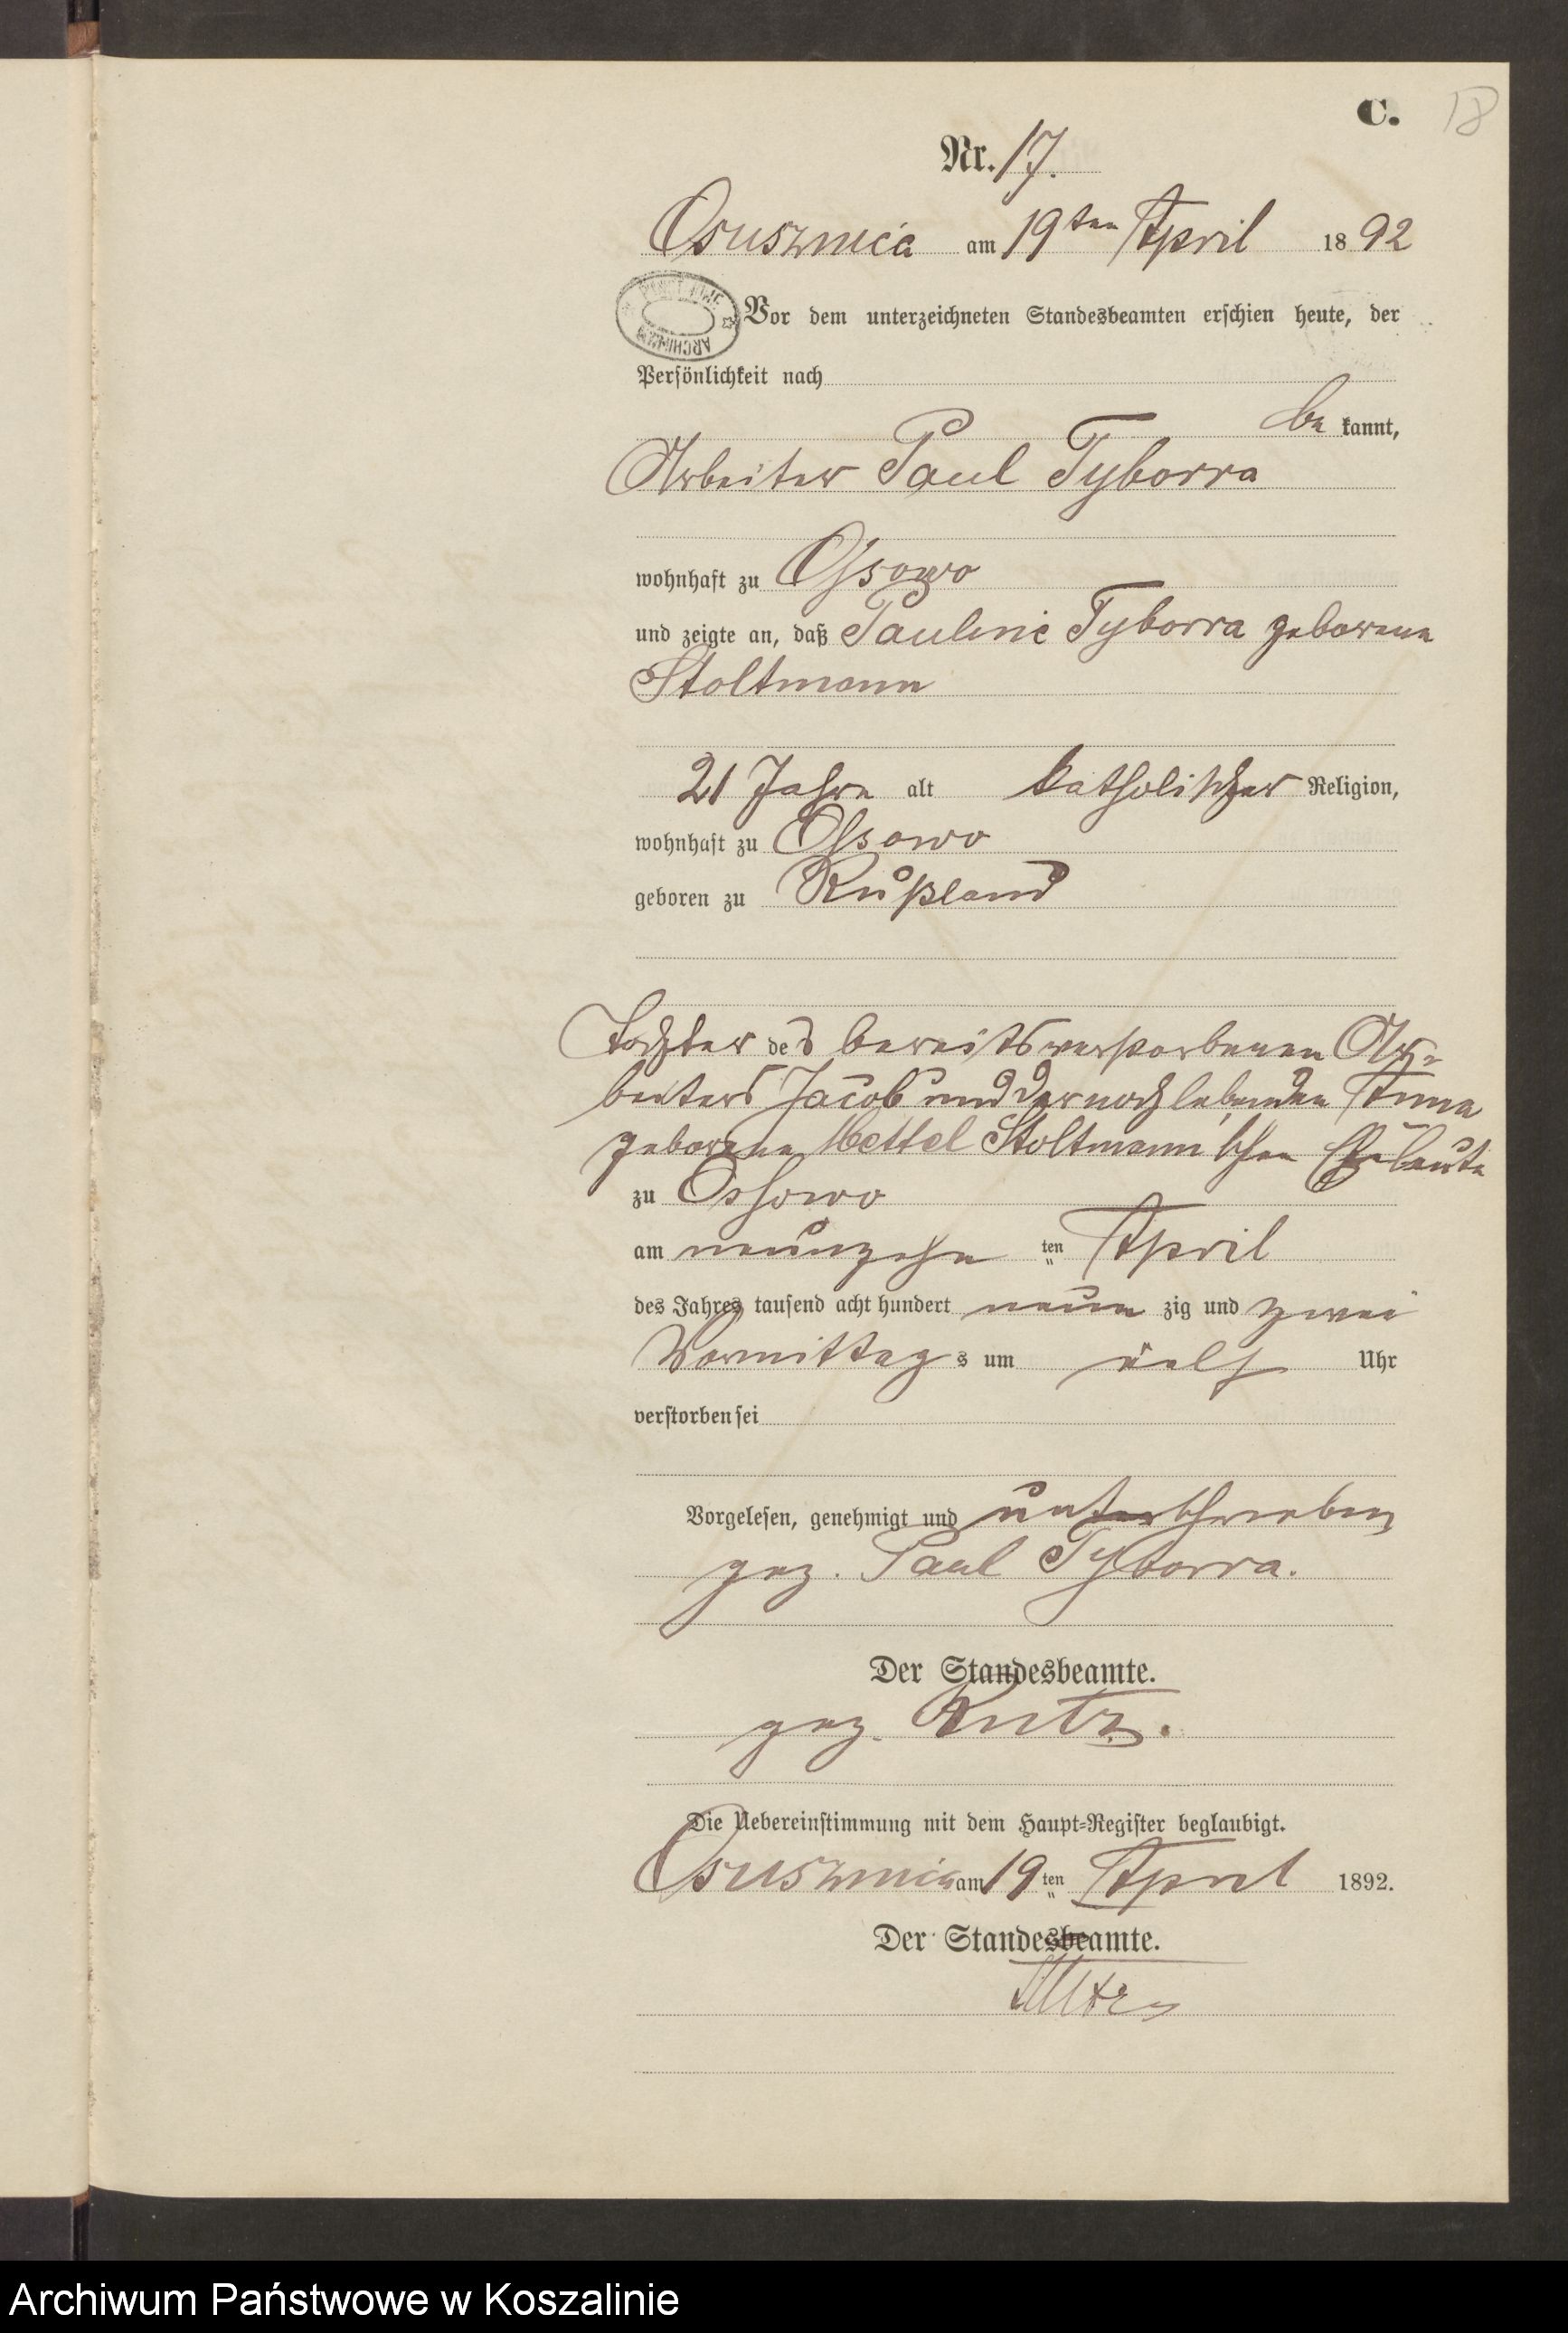 C. 18
Nr. 17.
Osusznica am 19ten April 1892
Vor dem unterzeichneten Standesbeamten erschien heute, der
Persönlichkeit nach
be kannt,
Arbeiter Paul Tyborra
wohnhaft zu Ossowo
und zeigte an, daß Pauline Tyborra geborene
Stoltmann
21 Jahre alt katholischer Religion,
wohnhaft zu Ossowo
geboren zu Rußland
Tochter des bereits verstorbenen Ar-
beiters Jacob und der noch lebenden Anna
geborene Mettel Stoltmann'schen Eheleute
zu Ossowo
am neunzehn ten April
des Jahres tausend acht hundert neun zig und zwei
Vormittag s um elf Uhr
verstorben sei
Vorgelesen, genehmigt und unterschrieben
gez. Paul Tyborra.
Der Standesbeamte.
gez. Kutz.
Die Uebereinstimmung mit dem Haupt-Register beglaubigt.
Osusznica am 19 ten April 1892.
Der Standesbeamte.
Kutz
Archiwum Państwowe w Koszalinie